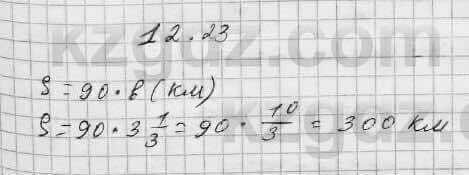 12.23
S = 90 • t (км)
S = 90 • 3 1/3 = 90 • 10/3 = 300 км
kzgdz.com